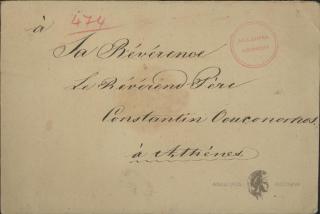 474
à
Sa Révérence
Le Révérend Père
Constantin Oeuconomos.
à Athènes.